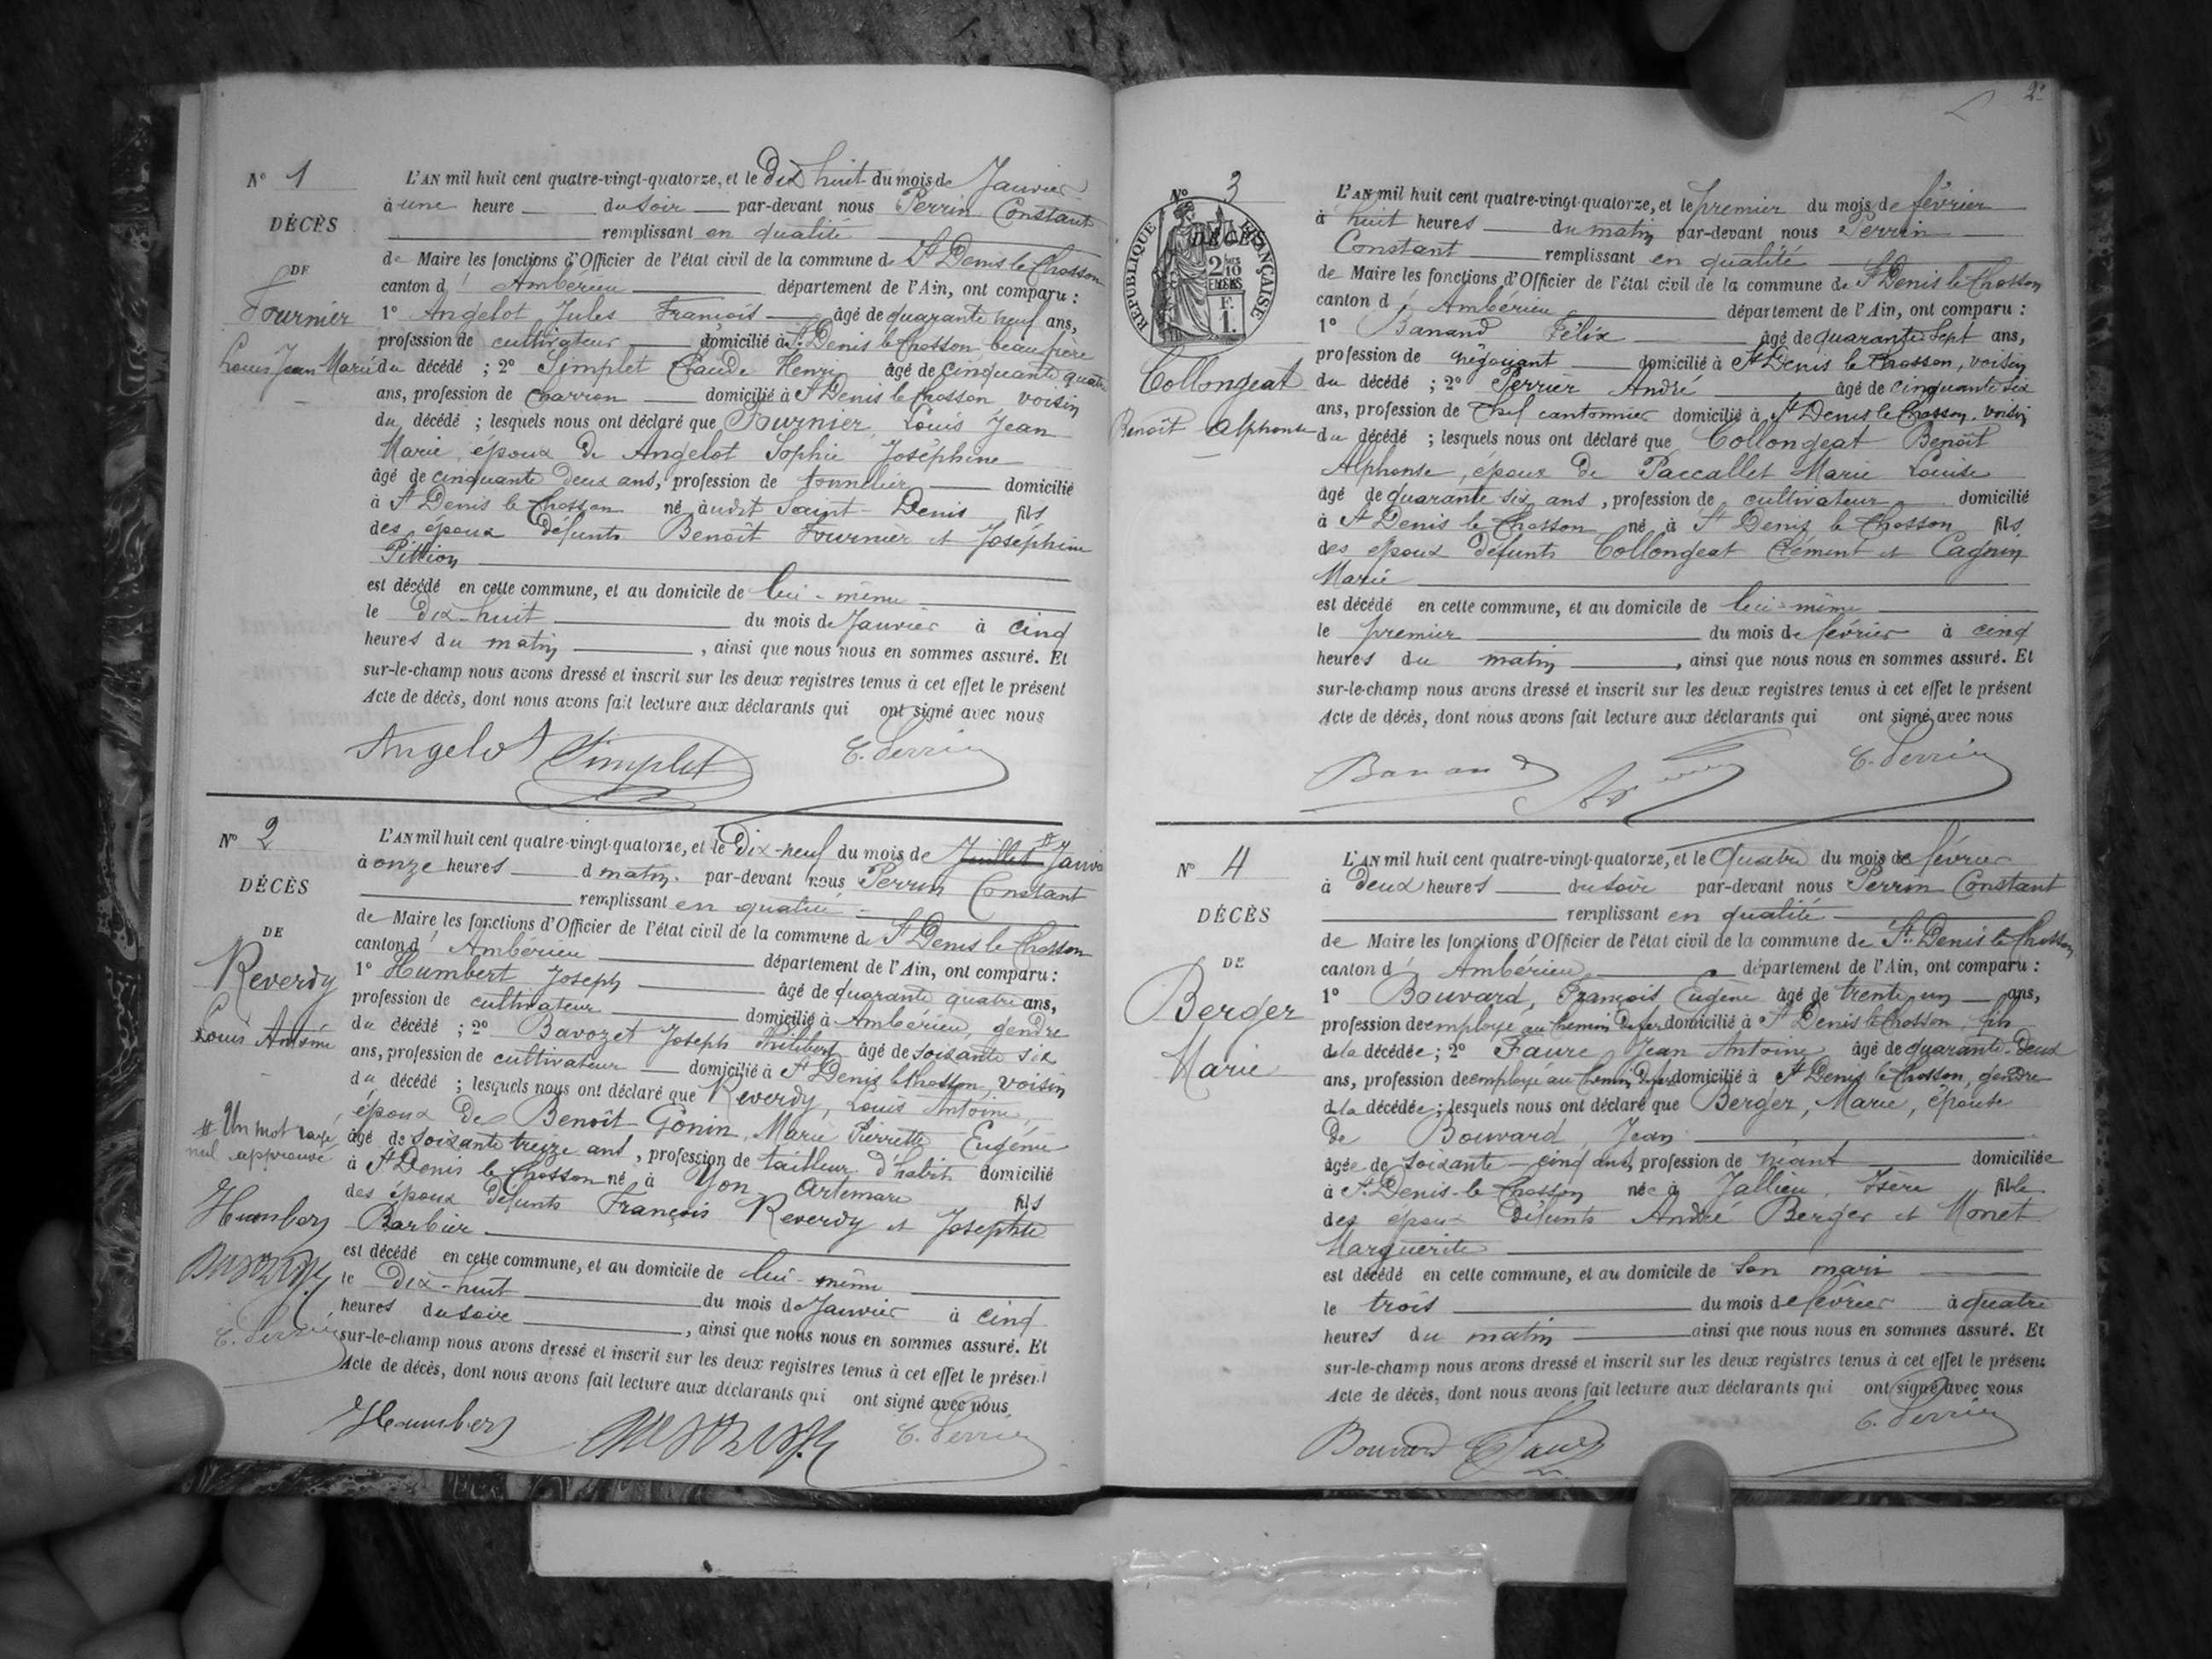 N° 1
DÉCÈS
DE
Fournier
Louis Jean Marie
L'AN mil huit cent quatre-vingt-quatorze, et le Dix huit du mois de Janvier
à une heure du soir par-devant nous Perrin Constant
remplissant en qualité
de Maire les fonctions d'Officier de l'état civil de la commune de St Denis le Chosson
canton d' Ambérieu département de l'Ain, ont comparu :
1° Angelot Jules François âgé de quarante neuf ans,
profession de cultivateur domicilié à St Denis le Chosson, beau frère
du décédé ; 2° Simplet Claude Henri âgé de cinquante quatre
ans, profession de charron domicilié à St Denis le Chosson voisin
du décédé ; lesquels nous ont déclaré que Fournier, Louis Jean
Marie, époux de Angelot Sophie Joséphine
âgé de cinquante deux ans, profession de tonnelier domicilié
à St Denis le Chosson né audit Saint-Denis fils
des époux défunts Benoît Fournier et Joséphine
Pittion
est décédé en cette commune, et au domicile de lui-même
le dix-huit du mois de Janvier à cinq
heures du matin, ainsi que nous nous en sommes assuré. Et
sur-le-champ nous avons dressé et inscrit sur les deux registres tenus à cet effet le présent
Acte de décès, dont nous avons fait lecture aux déclarants qui ont signé avec nous
Angelot Simplet C. Perrin
N° 2
DÉCÈS
DE
Reverdy
Louis Antoine
# Un mot rayé
nul approuvé
Humbert
C. Perrin
L'AN mil huit cent quatre-vingt-quatorze, et le Dix-neuf du mois de Juillet # Janvier
à onze heures d matin par-devant nous Perrin Constant
remplissant en qualité
de Maire les fonctions d'Officier de l'état civil de la commune de St Denis le Chosson
canton d' Ambérieu département de l'Ain, ont comparu :
1° Humbert Joseph âgé de quarante quatre ans,
profession de cultivateur domicilié à Ambérieu, gendre
du décédé ; 2° Bavozet Joseph Philibert âgé de soixante six
ans, profession de cultivateur domicilié à St Denis le Chosson, voisin
du décédé ; lesquels nous ont déclaré que Reverdy, Louis Antoine,
époux de Benoît-Gonin, Marie Pierrette Eugénie
âgé de soixante treize ans, profession de tailleur d'habits domicilié
à St Denis le Chosson né à Yon Artemare fils
des époux défunts François Reverdy et Josephte
Barbier
est décédé en cette commune, et au domicile de lui-même
le Dix-huit du mois de Janvier à cinq
heures du soir, ainsi que nous nous en sommes assuré. Et
sur-le-champ nous avons dressé et inscrit sur les deux registres tenus à cet effet le présent
Acte de décès, dont nous avons fait lecture aux déclarants qui ont signé avec nous
Humbert C. Perrin
2e
N° 3
DÉCÈS
RÉPUBLIQUE FRANÇAISE
2/10 EN SUS
1 F.
Collongeat
Benoît Alphonse
L'AN mil huit cent quatre-vingt-quatorze, et le premier du mois de février
à huit heures du matin par-devant nous Perrin
Constant remplissant en qualité
de Maire les fonctions d'Officier de l'état civil de la commune de St Denis le Chosson
canton d' Ambérieu département de l'Ain, ont comparu :
1° Banand Félix âgé de quarante sept ans,
profession de négociant domicilié à St Denis le Chosson, voisin
du décédé ; 2° Perrier André âgé de cinquante six
ans, profession de chef cantonnier domicilié à St Denis le Chosson, voisin
du décédé ; lesquels nous ont déclaré que Collongeat Benoît
Alphonse, époux de Paccallet Marie Louise
âgé de quarante six ans, profession de cultivateur domicilié
à St Denis le Chosson né à St Denis le Chosson fils
des époux défunts Collongeat Clément et Cagnin
Marie
est décédé en cette commune, et au domicile de lui-même
le premier du mois de février à cinq
heures du matin, ainsi que nous nous en sommes assuré. Et
sur-le-champ nous avons dressé et inscrit sur les deux registres tenus à cet effet le présent
Acte de décès, dont nous avons fait lecture aux déclarants qui ont signé avec nous
Banand C. Perrin
N° 4
DÉCÈS
DE
Berger
Marie
L'AN mil huit cent quatre-vingt-quatorze, et le Quatre du mois de février
à deux heures du soir par-devant nous Perrin Constant
remplissant en qualité
de Maire les fonctions d'Officier de l'état civil de la commune de St Denis le Chosson
canton d' Ambérieu département de l'Ain, ont comparu :
1° Bouvard, François Eugène âgé de trente un ans,
profession de employé au chemin de fer domicilié à St Denis le Chosson, fils
de la décédée ; 2° Faure Jean Antoine âgé de quarante-deux
ans, profession de employé au chemin de fer domicilié à St Denis le Chosson, gendre
d la décédée ; lesquels nous ont déclaré que Berger, Marie, épouse
de Bouvard, Jean
âgée de soixante-cinq ans, profession de néant domiciliée
à St Denis-le Chosson née à Jallieu, Isère fille
des époux défunts André Berger et Monet
Marguerite
est décédé en cette commune, et au domicile de son mari
le trois du mois de février à quatre
heures du matin ainsi que nous nous en sommes assuré. Et
sur-le-champ nous avons dressé et inscrit sur les deux registres tenus à cet effet le présent
Acte de décès, dont nous avons fait lecture aux déclarants qui ont signé avec nous
Bouvard Faure C. Perrin